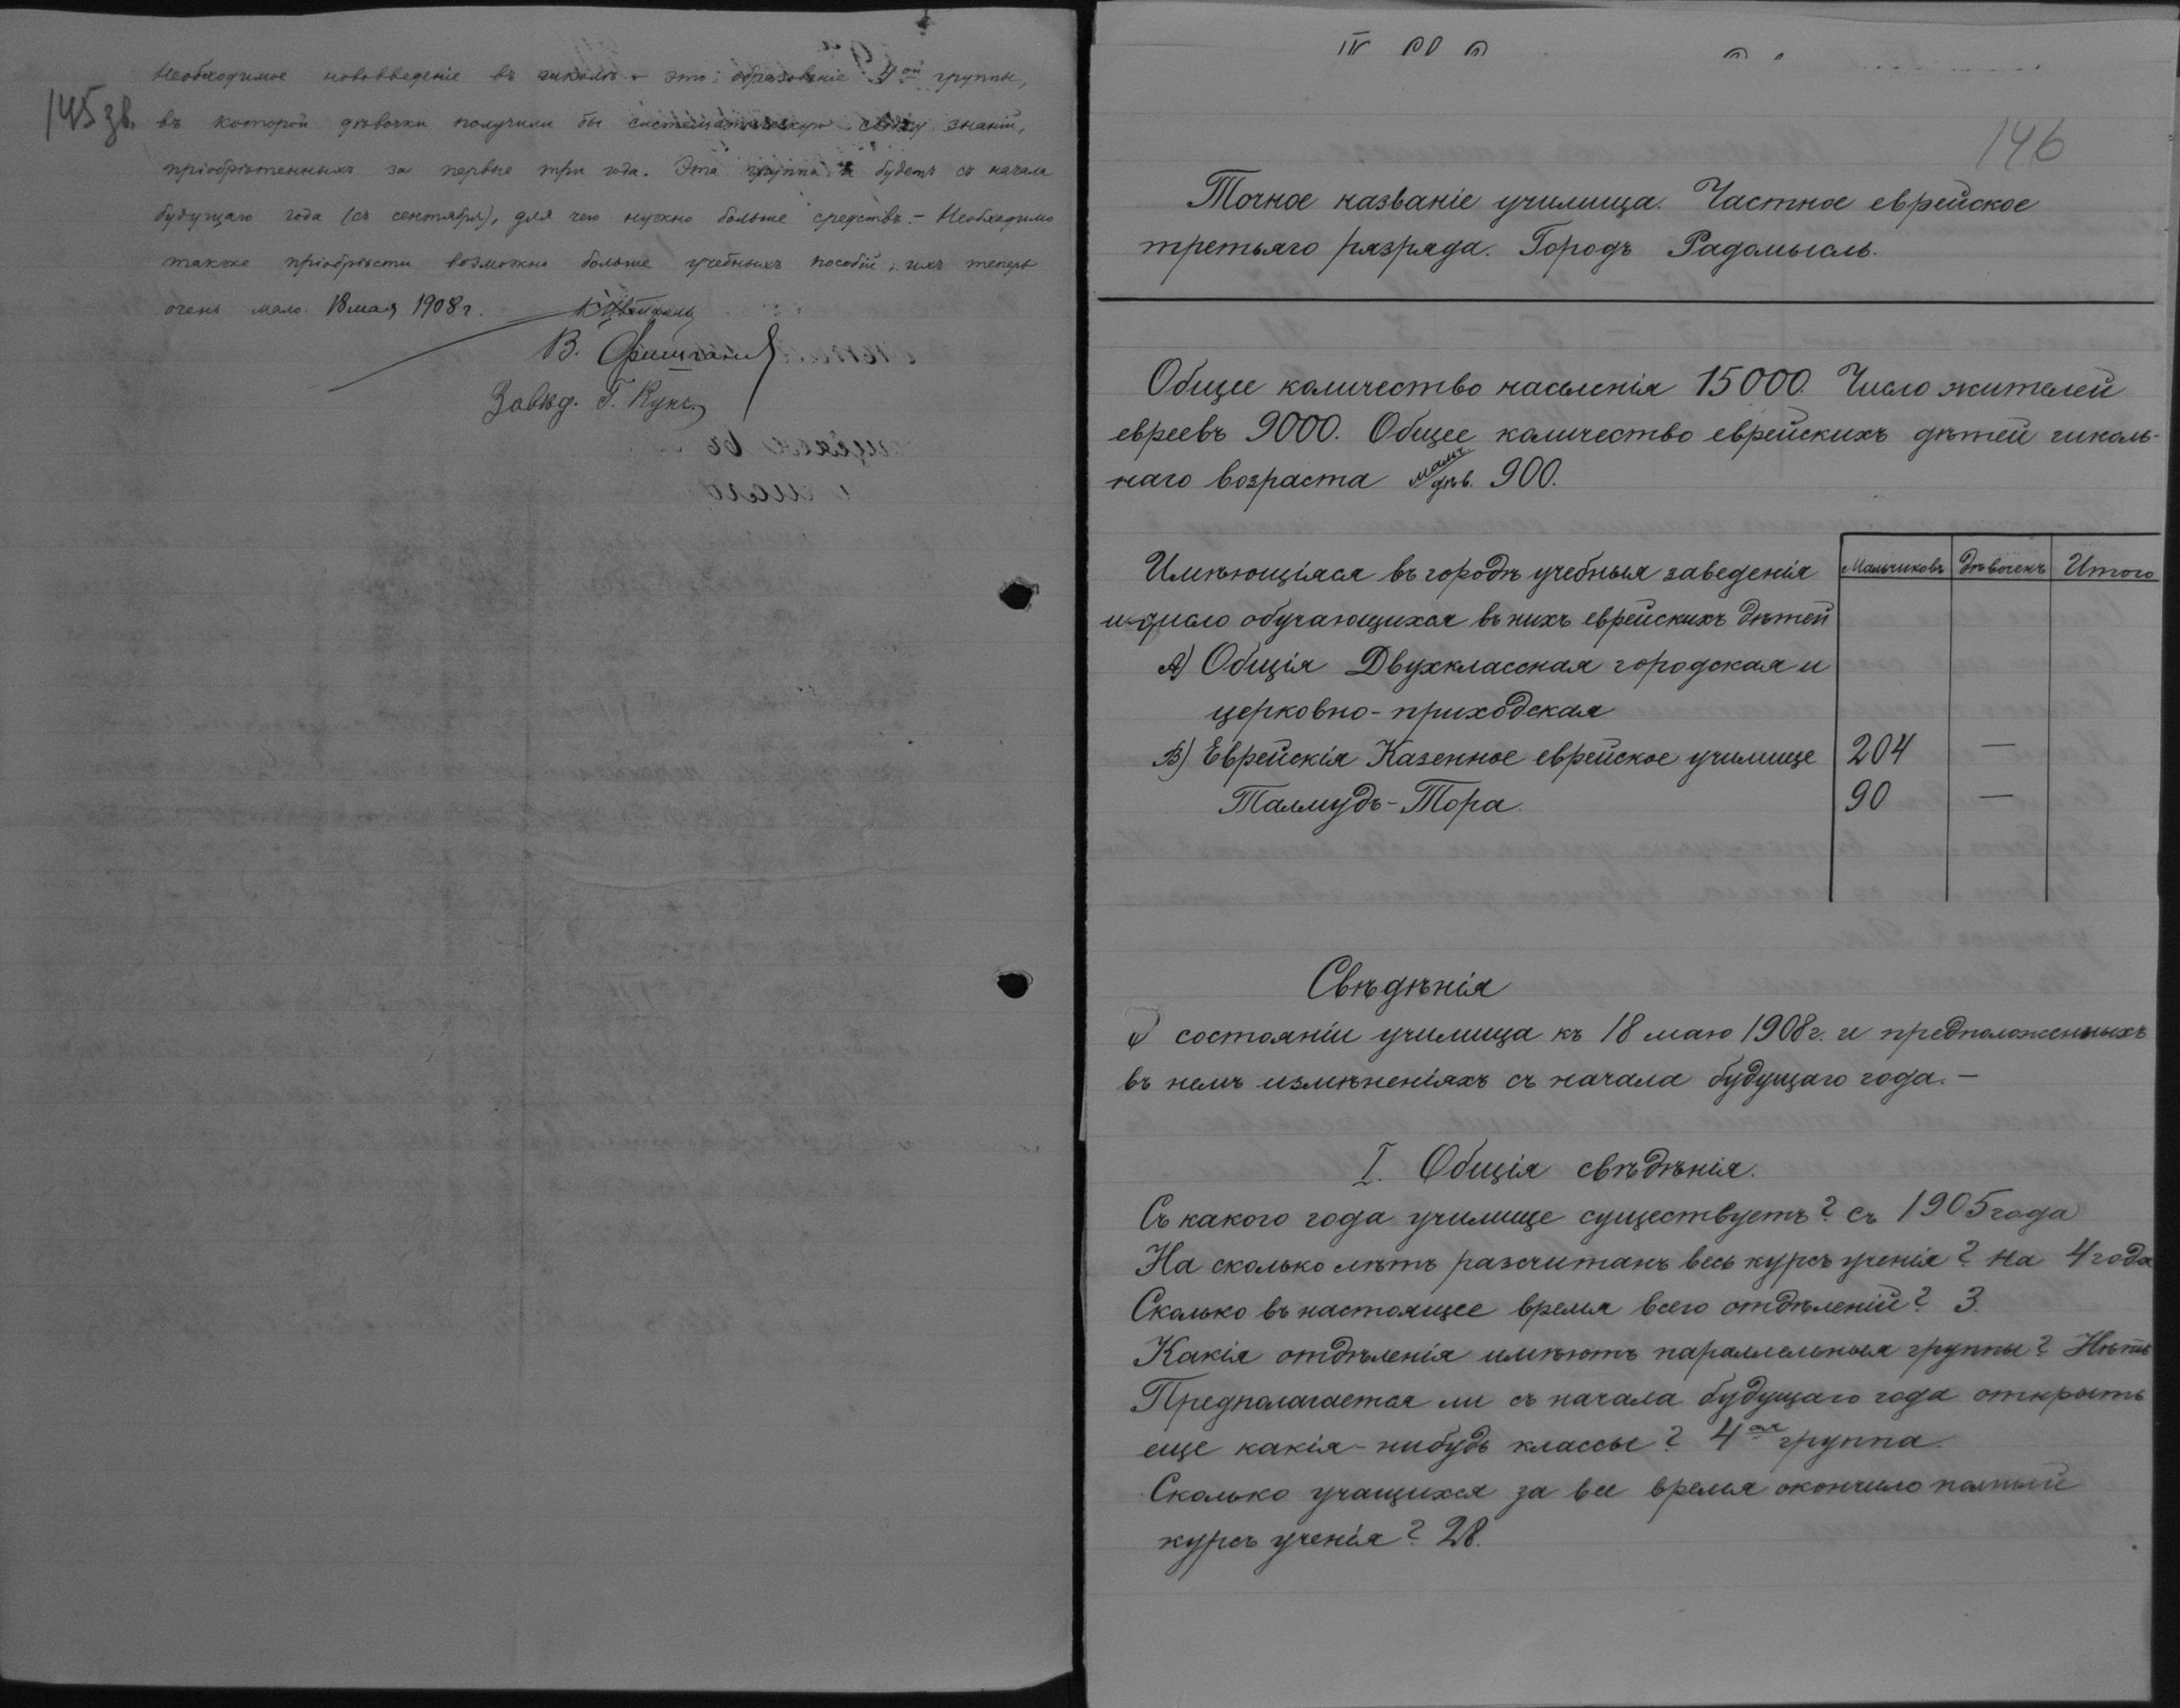 145 зв.
Необходимое нововведеніе въ школѣ – это: образованіе 4ой группы,
въ которой дѣвочки получили бы систематическую сводку знаній,
пріобрѣтенныхъ за первые три года. Эта группа будетъ съ начала
будущаго года (съ сентября), для чего нужно больше средствъ. – Необходимо
также пріобрѣсти возможно больше учебныхъ пособій; ихъ теперь
очень мало. 18 мая 1908 г.
В.
Завѣд. Г.
146
Точное названіе училища. Частное еврейское
третьяго разряда. Городъ Радомысль.
Общее количество населенія 15000. Число жителей
евреевъ 9000. Общее количество еврейскихъ дѣтей школь-
наго возраста мальч. дѣв. 900.
Имѣющіяся въ городѣ учебныя заведенія Мальчиковъ Дѣвочекъ Итого
и число обучающихся въ нихъ еврейскихъ дѣтей
А) Общія Двухклассная городская и
церковно-приходская
В) Еврейскія Казенное еврейское училище 204 —
Талмудъ-Тора. 90 —
Свѣдѣнія
о состояніи училища къ 18 маю 1908 г. и предположенныхъ
въ немъ измѣненіяхъ съ начала будущаго года. —
I. Общія свѣдѣнія.
Съ какого года училище существуетъ? съ 1905 года
На сколько лѣтъ разсчитанъ весь курсъ ученія? на 4 года
Сколько въ настоящее время всего отдѣленій? 3.
Какія отдѣленія имѣютъ параллельныя группы? Нѣтъ
Предполагается ли съ начала будущаго года открыть
еще какія-нибудь классы? 4ая группа.
Сколько учащихся за все время окончило полный
курсъ ученія? 28.